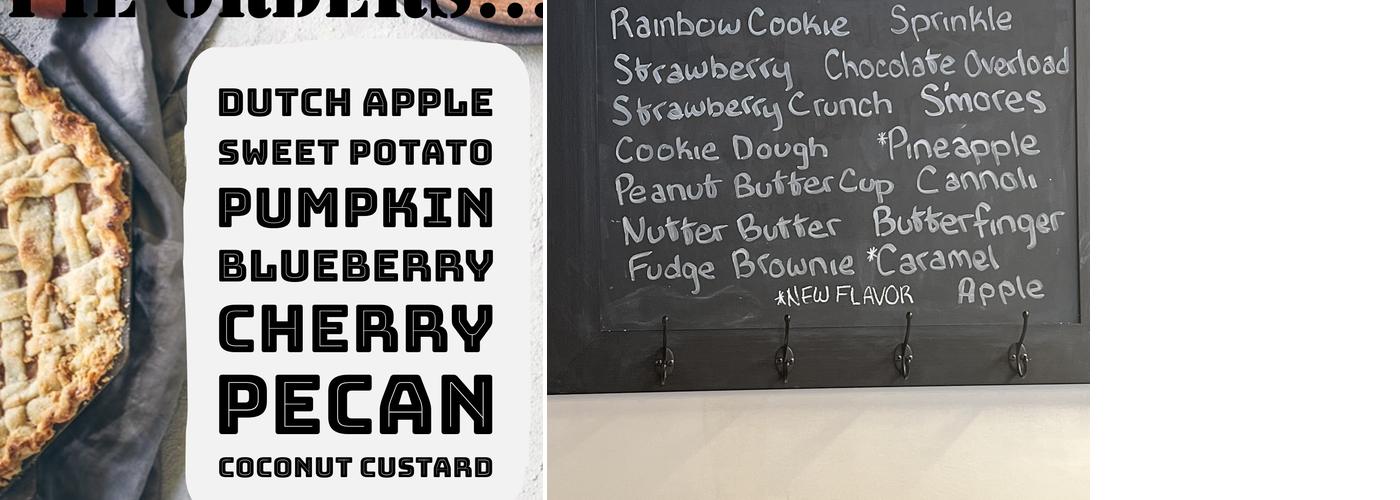 PIE ORDERS...
DUTCH APPLE
SWEET POTATO
PUMPKIN
BLUEBERRY
CHERRY
PECAN
COCONUT CUSTARD
Rainbow Cookie Sprinkle
Strawberry Chocolate Overload
Strawberry Crunch S'mores
Cookie Dough *Pineapple
Peanut Butter Cup Cannoli
Nutter Butter Butterfinger
Fudge Brownie *Caramel
*NEW FLAVOR Apple